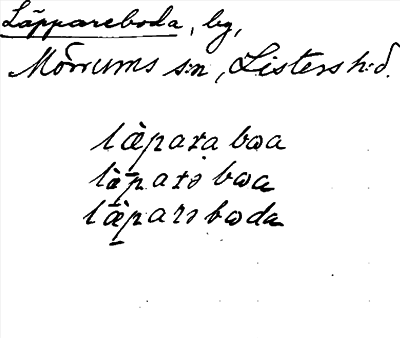 Läppareboda, by,
Mörrums s:n, Listers h:d.
læ̀paʀa bωa
læ̀paʀə bωa
læ̀parə bωda